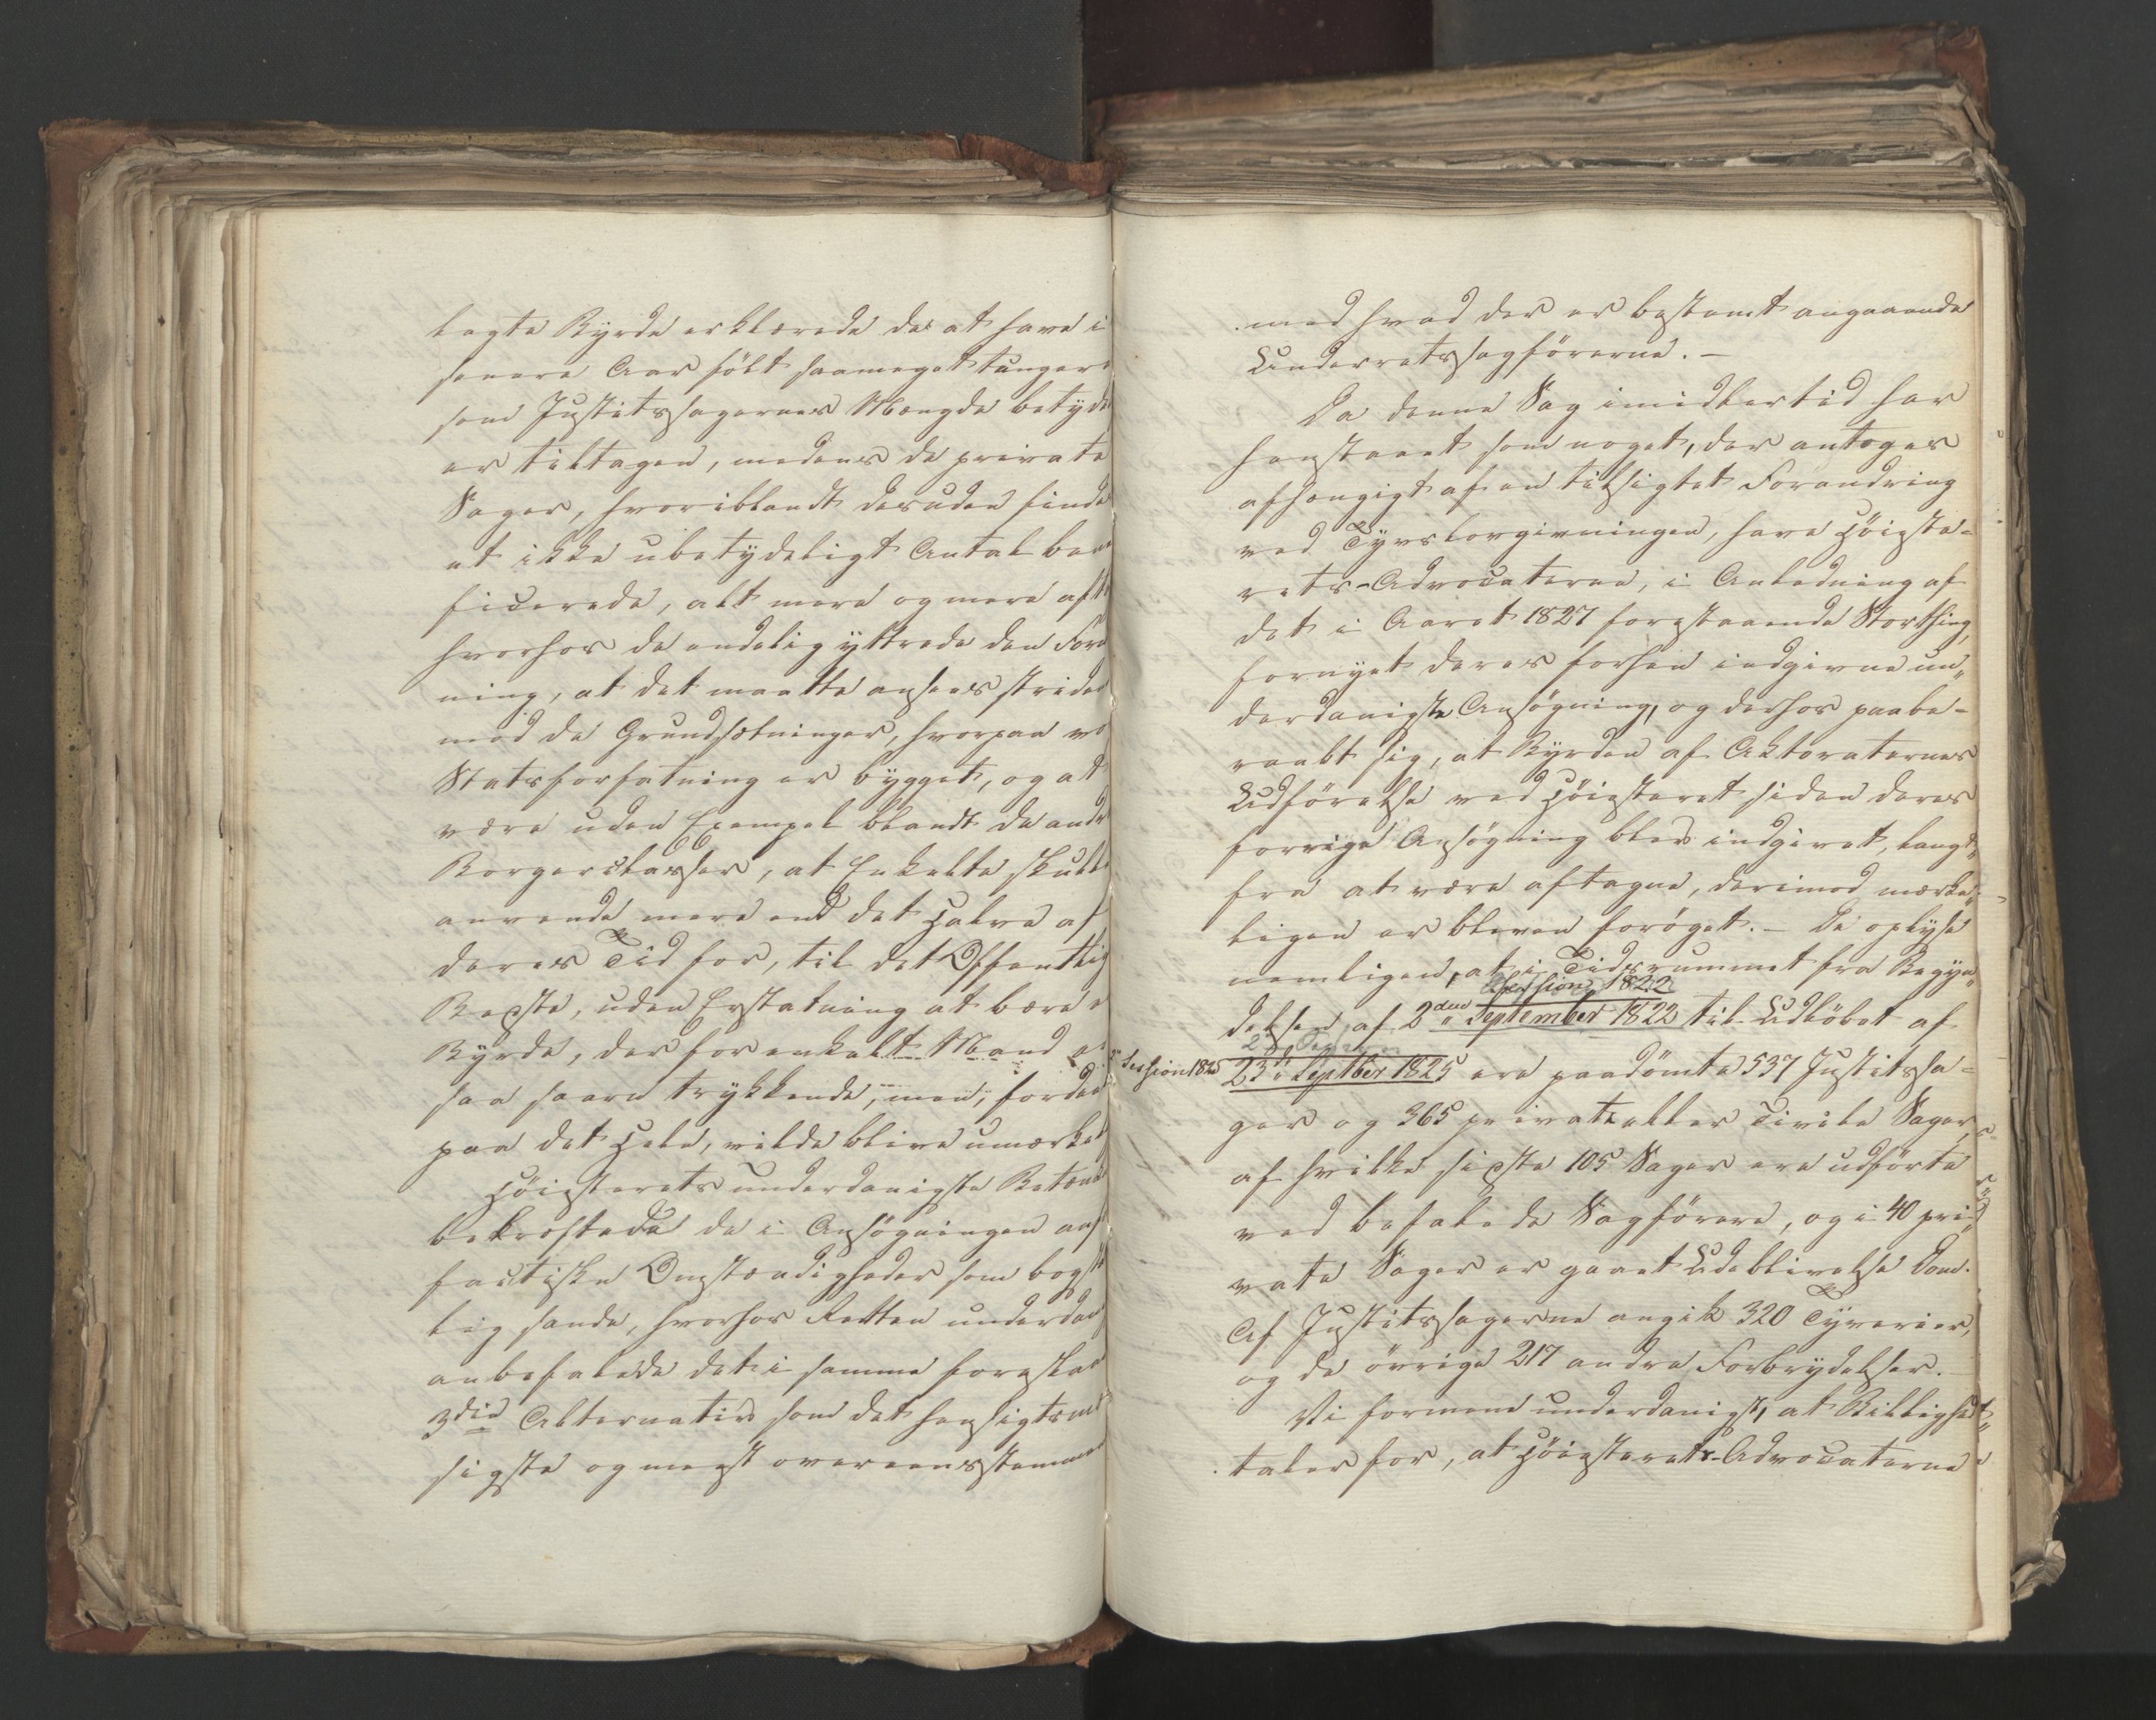 lagte Byrde erklærede de at have i
senere Aar følt saameget tungere
som Justitssagernes Mængde betyde
er tiltagen, medens de private
Sager, hvoriblandt desuden finde
et ikke ubetydeligt Antal bene
ficerede, alt mere og mere afta
hvorhos de endelig yttrede den For
ning, at det maatte ansees striden
med de Grundsætninger, hvorpaa vo
Statsforfatning er bygget, og at
være uden Exempel blandt de andr
Borgerclasser, at Enkelte skulle
anvende mere end det Halve af
deres Tid for, til det Offentlig
Bedste, uden Erstatning at bære e
Byrde, der for enkelt Mand er
saa saare trykkende, men, fordeel
paa det Hele, vilde blive umærkel
Høiesterets underdanigste Betænk
bekræftede de i Ansøgningen anf
factiske Omstændigheder som bogst
lig sande, hvorhos Retten underdan
anbefalede det i samme foreslaa
3die Alternativ som det hensigtsmæ
sigste og meest overeensstemmen
med hvad der er bestemt angaaende
Underretssagførerne. –
Da denne Sag imidlertid har
henstaaet som noget, der antoges
afhængigt af en tilsigtet Forandring
ved Tyvslovgivningen, have Høieste-
rets-Advocaterne, i Anledning af
det i Aaret 1827 forestaaende Storthing,
fornyet deres forhen indgivne un„
derdanigste Ansøgning, og derhos paabe-
raabt sig, at Byrden af Aktoraternes
Udførelse ved Høiesteret siden deres
forrige Ansøgning blev indgivet, langt„
fra at være aftagne, derimod mærke„
ligen er bleven forøget. – De oplyse
nemligen, at i Tidsrummet fra Begyn„
Session 1822
delsen af 2den September 1822 til Udløbet af
Session 1825 23d Septber 1825 ere paadømte 537 Justitssa-
ger og 365 private eller Civile Sager,
af hvilke sidste 105 Sager ere udførte
ved befalede Sagførere, og i 40 pri„
vate Sager er gaaet Udeblivelse Dom.
Af Justitssagerne angik 320 Tyverier,
og de øvrige 217 andre Forbrydelser. –
Vi formene underdanigst, at Billighed
taler for, at Høiesterets-Advocaterne